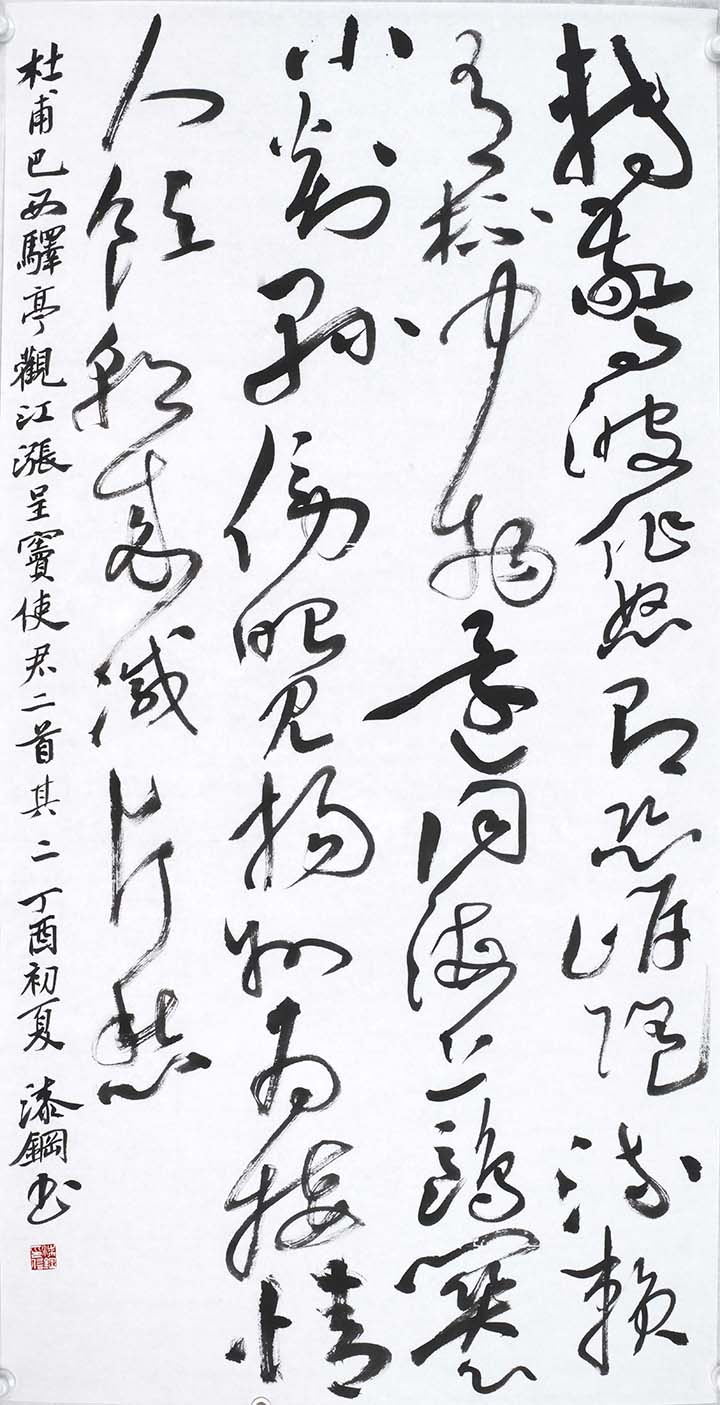 轉驚波作怒即恐岸隨流賴
有杯中物還同海上鷗關心
小剡縣傍眼見揚州為接情
人飲朝來減片愁
杜甫巴西驛亭觀江漲呈竇使君二首其二丁酉初夏漆鋼书